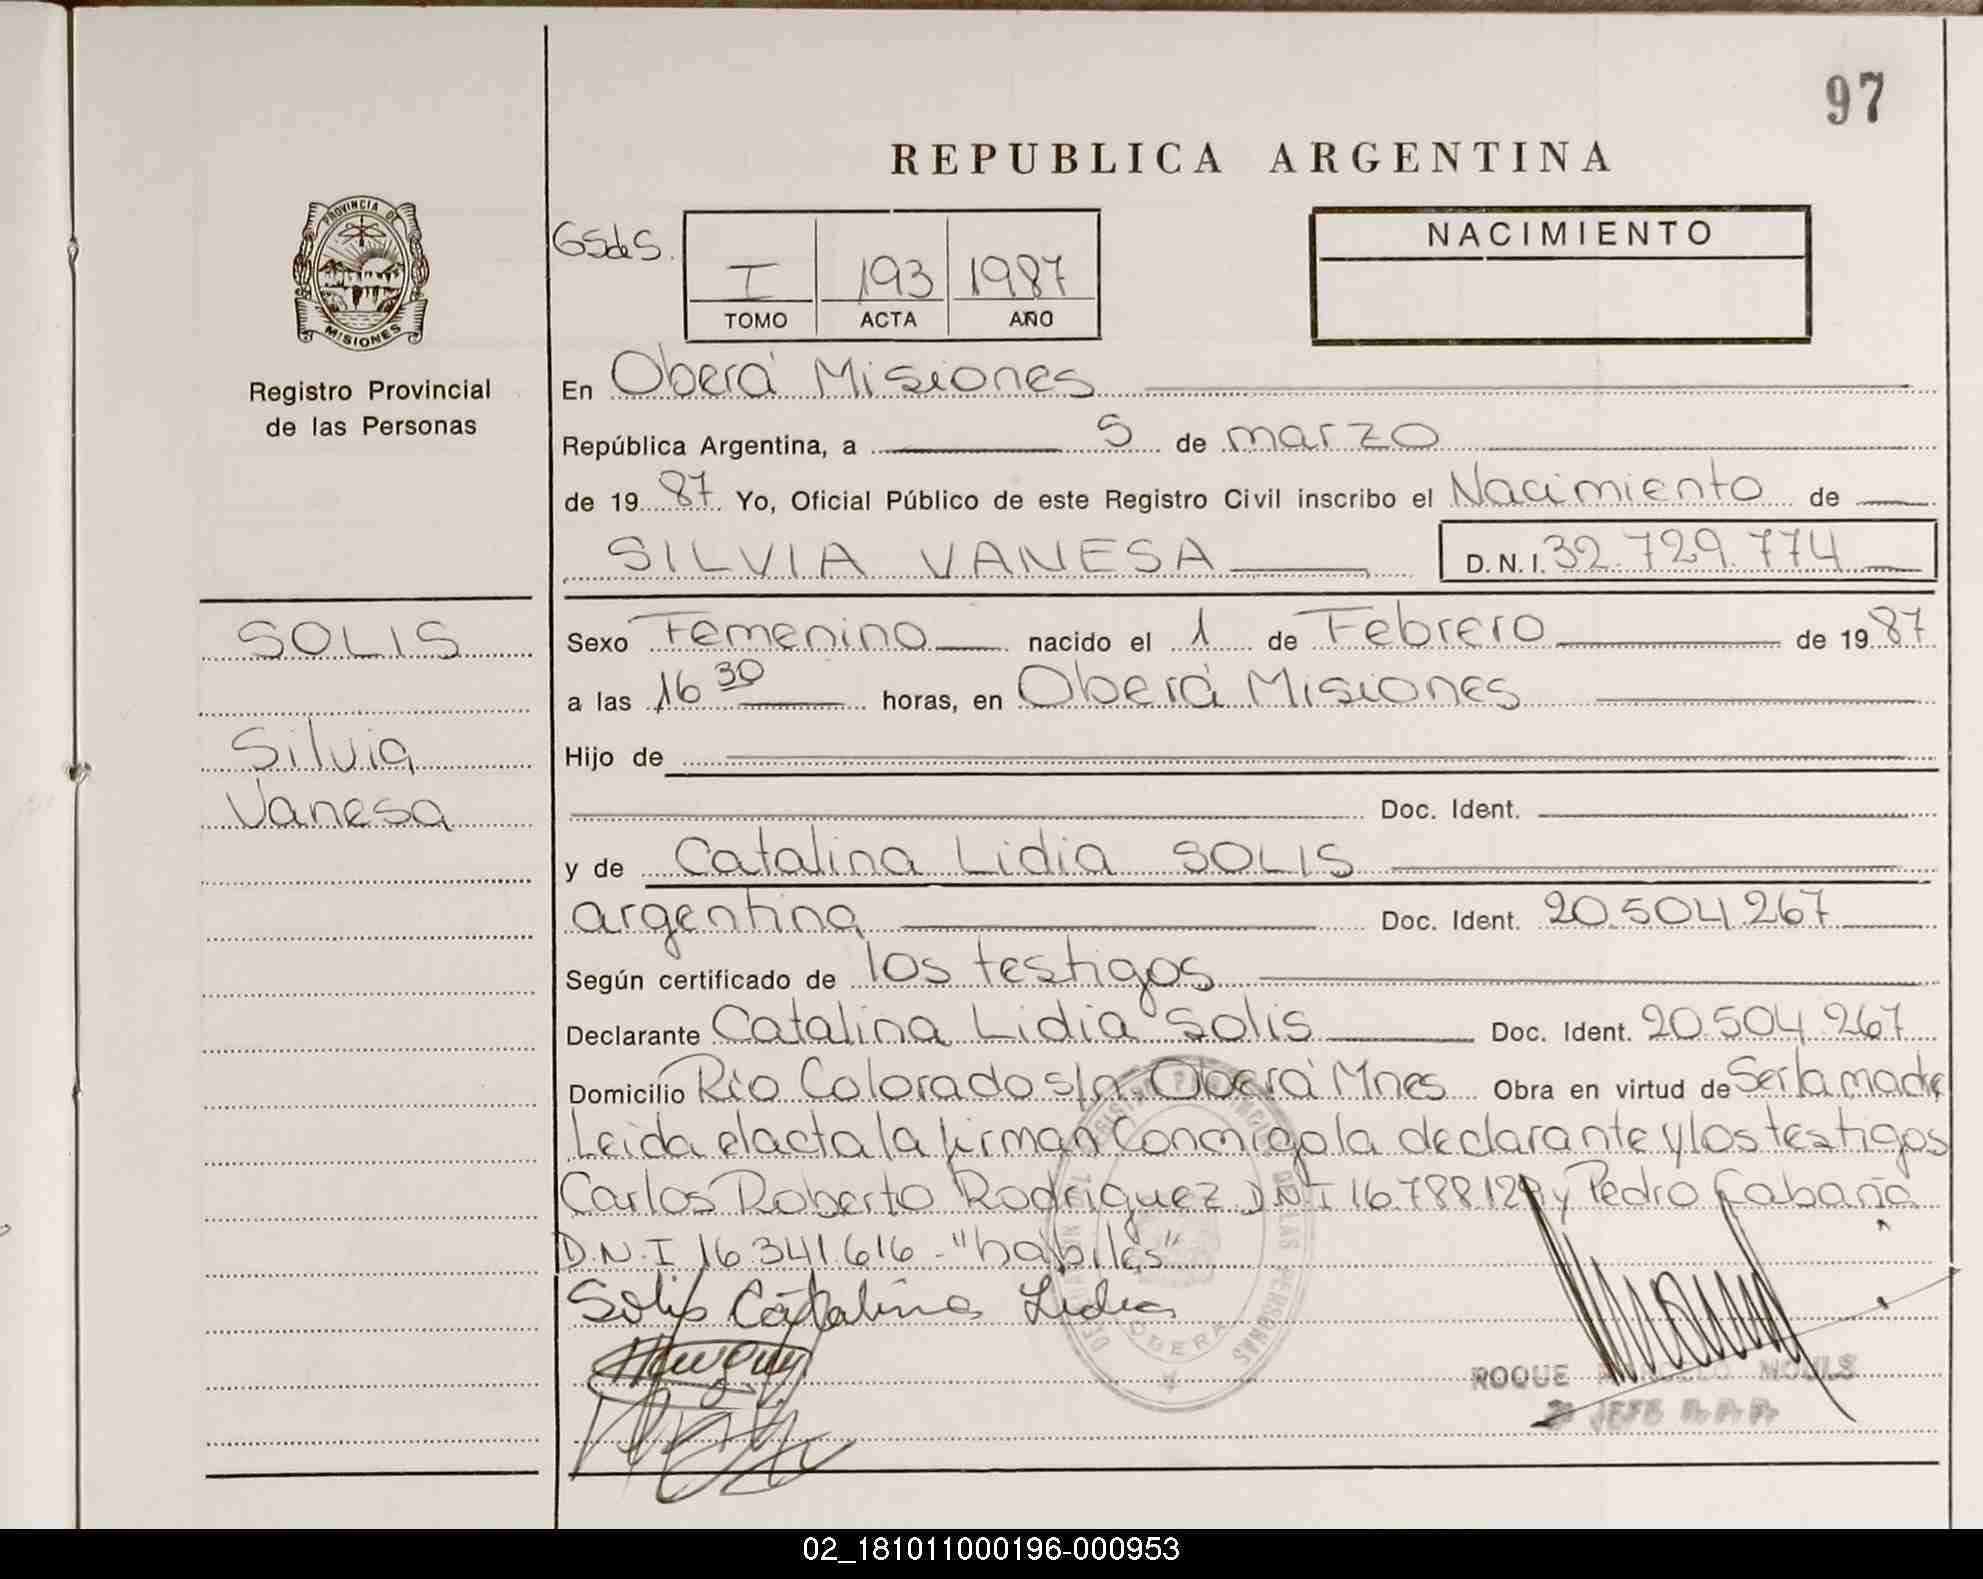 97
REPUBLICA ARGENTINA
PROVINCIA DE
MISIONES
Registro Provincial
de las Personas
GSdeS.
I 193 1987
TOMO ACTA AÑO
NACIMIENTO
En Oberá Misiones
República Argentina, a 5 de marzo
de 19 87 Yo, Oficial Público de este Registro Civil inscribo el Nacimiento de
SILVIA VANESA D.N.I. 32.729.774
SOLIS
Silvia
Vanesa
Sexo Femenino nacido el 1 de Febrero de 19 87
a las 16 30 horas, en Oberá Misiones
Hijo de
Doc. Ident.
y de Catalina Lidia SOLIS
argentina Doc. Ident. 20.504.267
Según certificado de los testigos
Declarante Catalina Lidia Solis Doc. Ident. 20.504.267
Domicilio Rio Colorado s/n Oberá Mnes Obra en virtud de Ser la madre
Leida el acta la firman Conmigo la declarante y los testigos
Carlos Roberto Rodriguez D.N.I 16.788.129 y Pedro Cabaña
D.N.I 16.341.616 - "habiles"
Solis Catalina Lidia
DE LAS PERSONAS
OBERA
ROQUE
JEFE R. P. P.
02_181011000196-000953